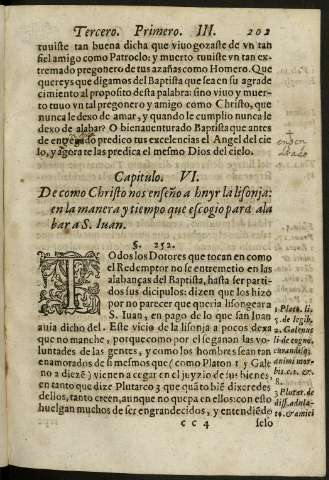 Tercero. Primero. III. 202
tuuiste tan buena dicha que viuo gozaste de vn tan
fiel amigo como Patroclo: y muerto tuuiste vn tan ex-
tremado pregonero de tus azañas como Homero. Que
quereys que digamos del Baptista que sea en su agrade
cimiento al proposito desta palabra: sino viuo y muer-
to tuuo vn tal pregonero y amigo como Christo, que
nunca le dexo de amar, y quando le cumplio nunca le
dexo de alabar? O bienauenturado Baptista que antes
de entregado predico tus excelencias el Angel del cie
lo, y agora te las predica el mesmo Dios del cielo.
Capitulo. VI.
De como Christo nos enseño a huyr la lisonja:
en la manera y tiempo que escogio para ala
bar a S. Iuan.
§. 252.
TOdos los Dotores que tocan en como
el Redemptor no se entremetio en las
alabanças del Baptista, hasta ser parti-
dos sus dicipulos: dizen que los hizo
por no parecer que queria lisongear a
S. Iuan, en pago de lo que san Iuan
auia dicho del. Este vicio de la lisonja a pocos dexa
que no manche, porque como por el se ganan las vo-
luntades de las gentes, y como los hombres sean tan
enamorados de si mesmos que (como Platon 1 y Gale
no 2 dizē) vienen a cegar en el juyzio de sus bienes,
en tanto que dize Plutarco 3 que quāto biē dixeredes
dellos, tanto creen, aunque no quepa en ellos: con esto
huelgan muchos de ser engrandecidos, y entendiēdo
cc 4 selo
1 Plato. li.
5. de legib.
2. Galenus
li. de cogno.
curandisq;
animi mor
bis. c. 2. &
8.
3 Plutar. de
diff. adula-
to. & amici